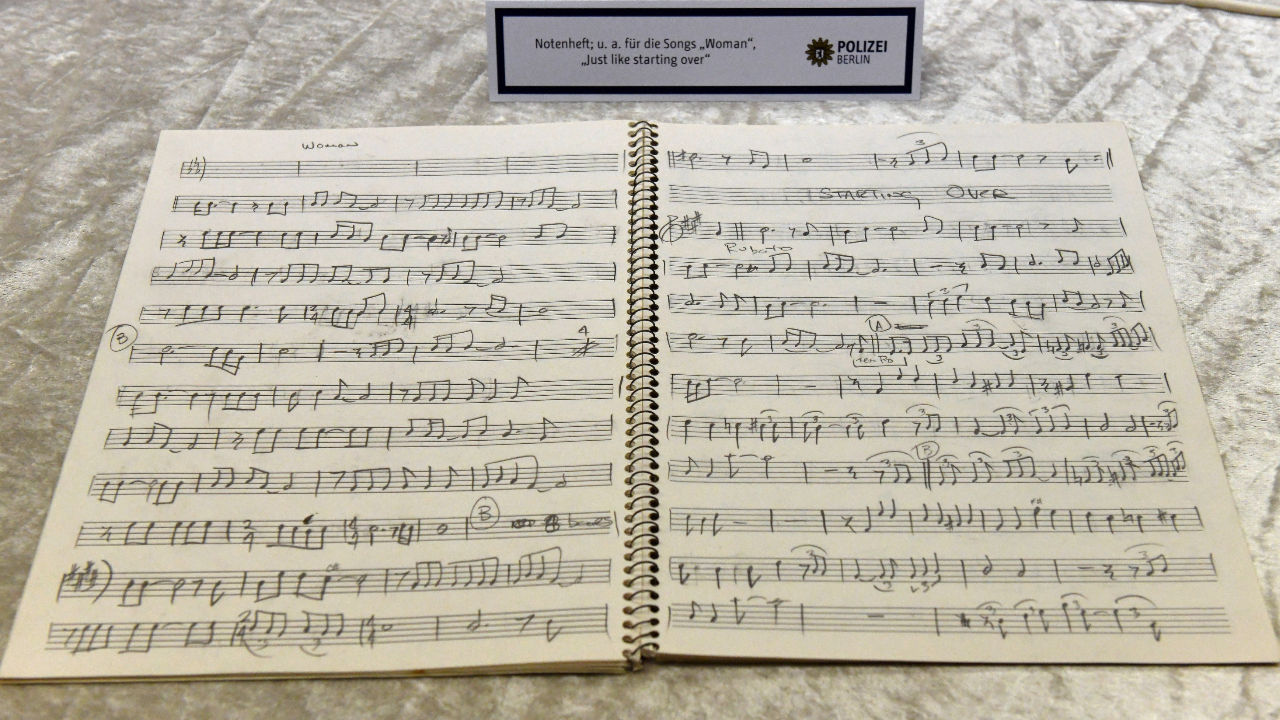 Notenheft; u. a. für die Songs „Woman“,
„Just like starting over“
POLIZEI
BERLIN
Woman
3
STARTING OVER
Rubato
A
Tempo
B
4
B
B